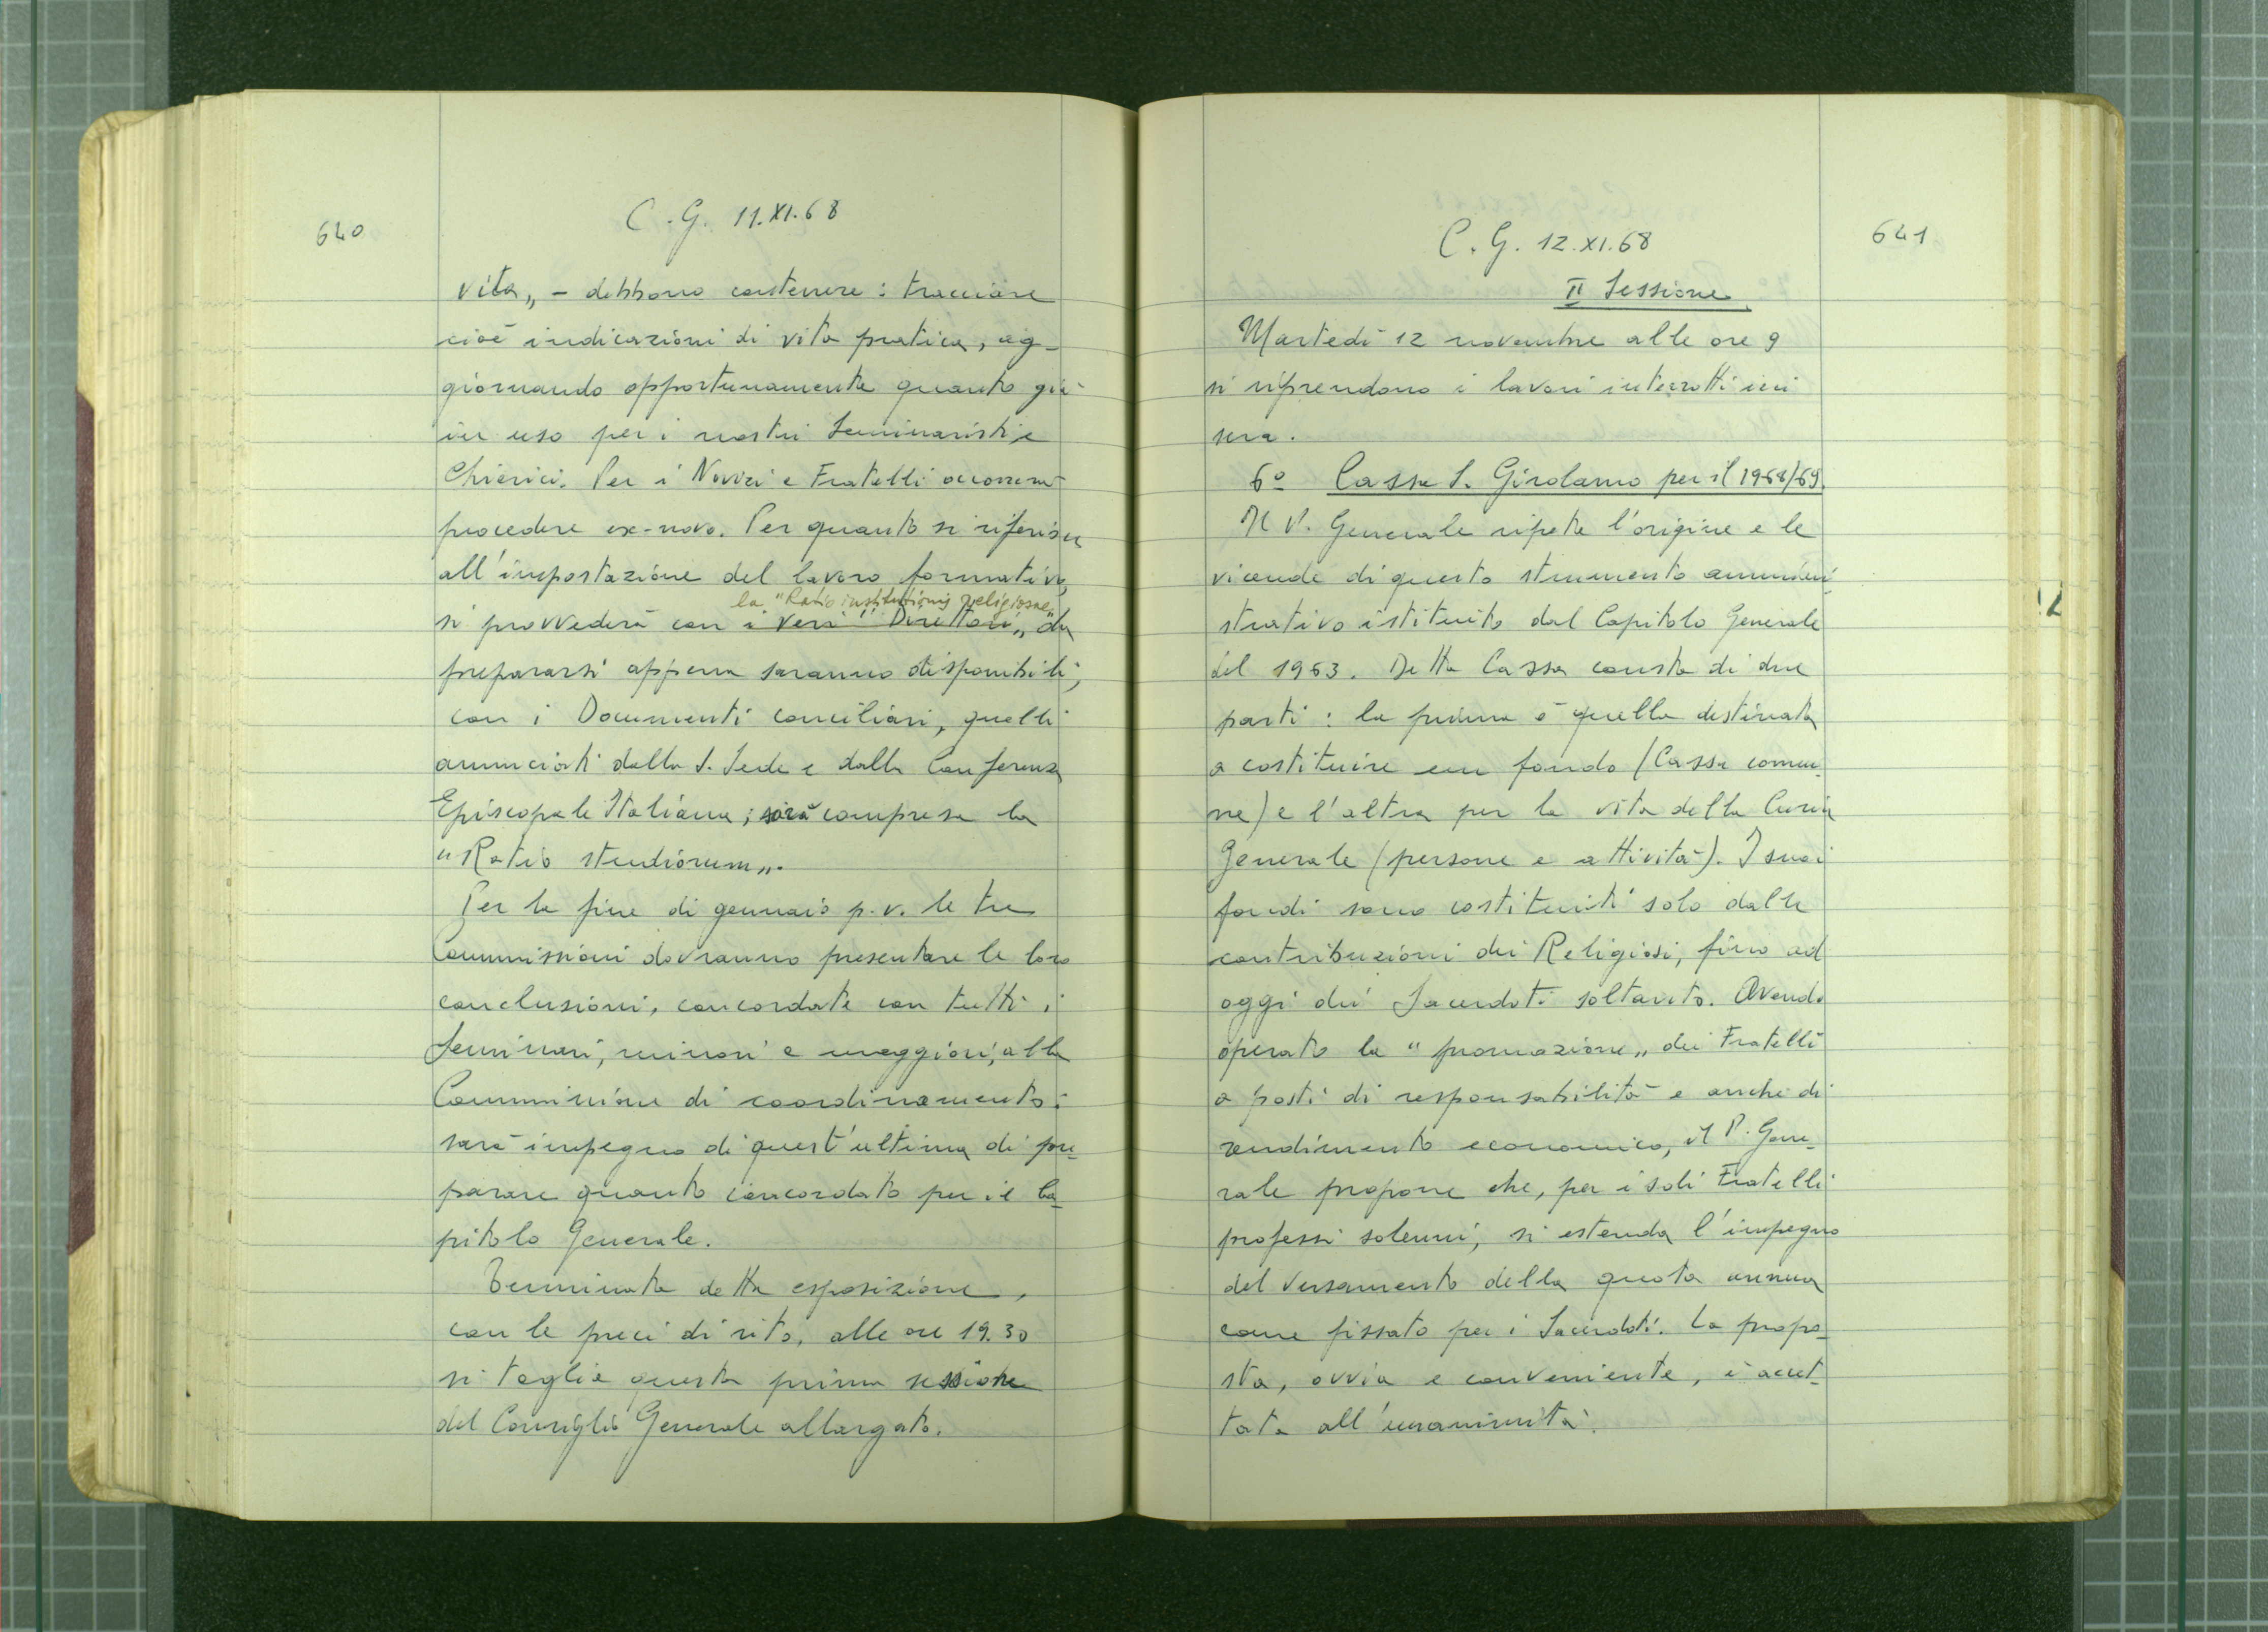 640
C.G. 11.XI.68
vita„ - debbono contenere: tracciare
cioè indicazioni di vita pratica, ag-
giornando opportunamente quanto già
in uso per i nostri Seminaristi e
Chierici. Per i Novizi e Fratelli occorrerà
procedere ex-novo. Per quanto si riferisce
all'impostazione del lavoro formativo,
la "Ratio institutionis religiosae„
si provvederà con i veri "Direttori„ da
prepararsi appena saranno disponibili,
con i Documenti conciliari, quelli
annunciati dalla S. Sede e dalla Conferenza
Episcopale Italiana; sarà compresa la
"Ratio studiorum„.
Per la fine di gennaio p.v. le tre
Commissioni dovranno presentare le loro
conclusioni, concordate con tutti i
Seminari, minori e maggiori, alla
Commissione di coordinamento:
sarà impegno di quest'ultima di pre-
parare quanto concordato per il Ca-
pitolo Generale.
Terminata detta esposizione,
con le preci di rito, alle ore 19.30
si toglie questa prima sessione
del Consiglio Generale allargato.
641
C.G. 12.XI.68
II Sessione
Martedì 12 novembre alle ore 9
si riprendono i lavori interrotti ieri
sera.
6º Cassa S. Girolamo per il 1968/69
Il P. Generale ripete l'origine e le
vicende di questo strumento ammini-
strativo istituito dal Capitolo Generale
del 1963. Detta Cassa consta di due
parti: la prima è quella destinata
a costituire un fondo (Cassa comu-
ne) e l'altra per la vita della Curia
Generale (persone e attività). I suoi
fondi sono costituiti solo dalle
contribuzioni dei Religiosi, fino ad
oggi dei Sacerdoti soltanto. Avendo
operato la "promozione„ dei Fratelli
a posti di responsabilità e anche di
rendimento economico, il P. Gene-
rale propone che, per i soli Fratelli
professi solenni, si estenda l'impegno
del versamento della quota annua
come fissato per i Sacerdoti. La propo-
sta, ovvia e conveniente, è accet-
tata all'unanimità.